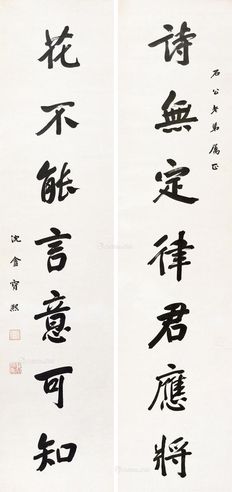 石公老弟属正
詩無定律君應將
花不能言意可知
沈盦寶熙